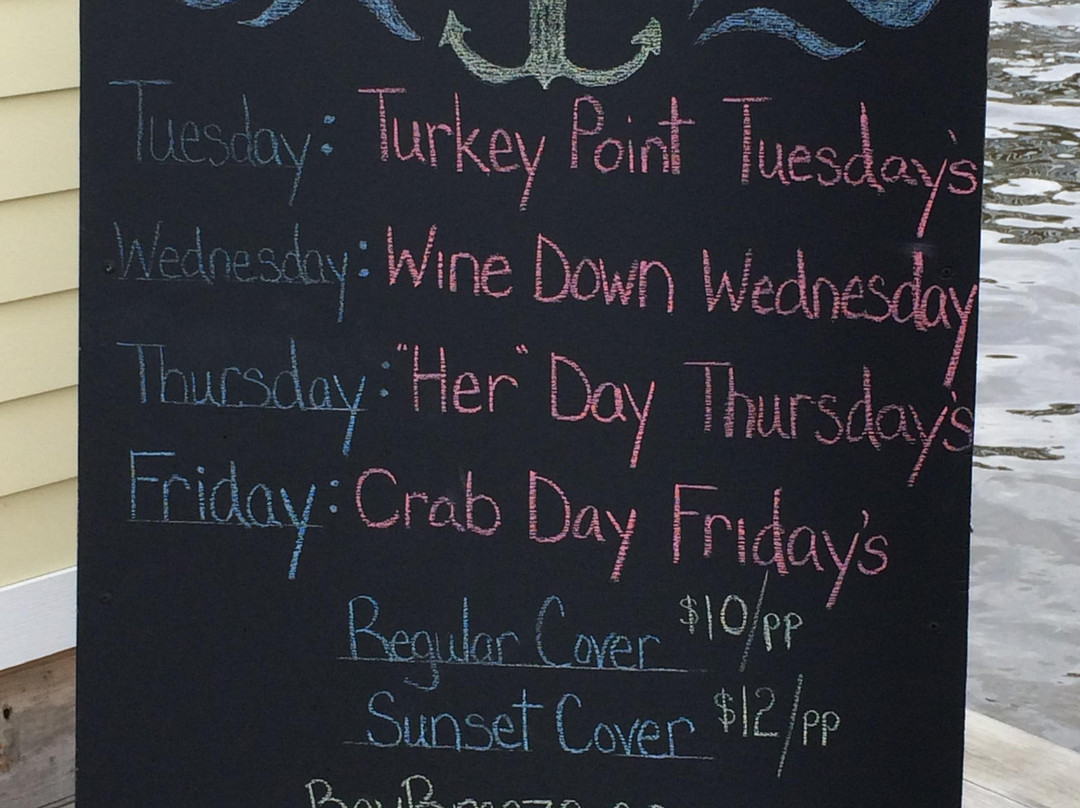 Tuesday: Turkey Point Tuesday's
Wednesday: Wine Down Wednesday
Thursday: "Her" Day Thursday's
Friday: Crab Day Friday's
Regular Cover $10/pp
Sunset Cover $12/pp